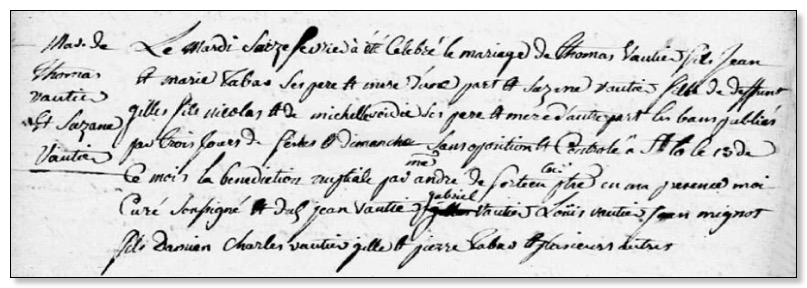 Mar. de
Thomas
vautier
Et Suzane
Vautier
Le Mardi Saize fevrie à été Celebré le mariage de Thomas Vautier fils Jean
Et marie Tabao Ses pere et mere d'une part Et Suzene vautier fille de deffunt
gilles fils nicolas Et de michelle Ses pere Et mere d'autre part les bans publiés
par trois Jours de festes Et dimanche Sans oposition Et Controle a St lo le 13 de
Ce mois la benediction nuptiale par me andre de ptre en ma presence moi
Curé Sousigné Et du jean Vautier gabriel Vautier Loüis vautier jean mignot
fils Damien Charles vautier gille Et pierre Tabao Et plusieurs autres